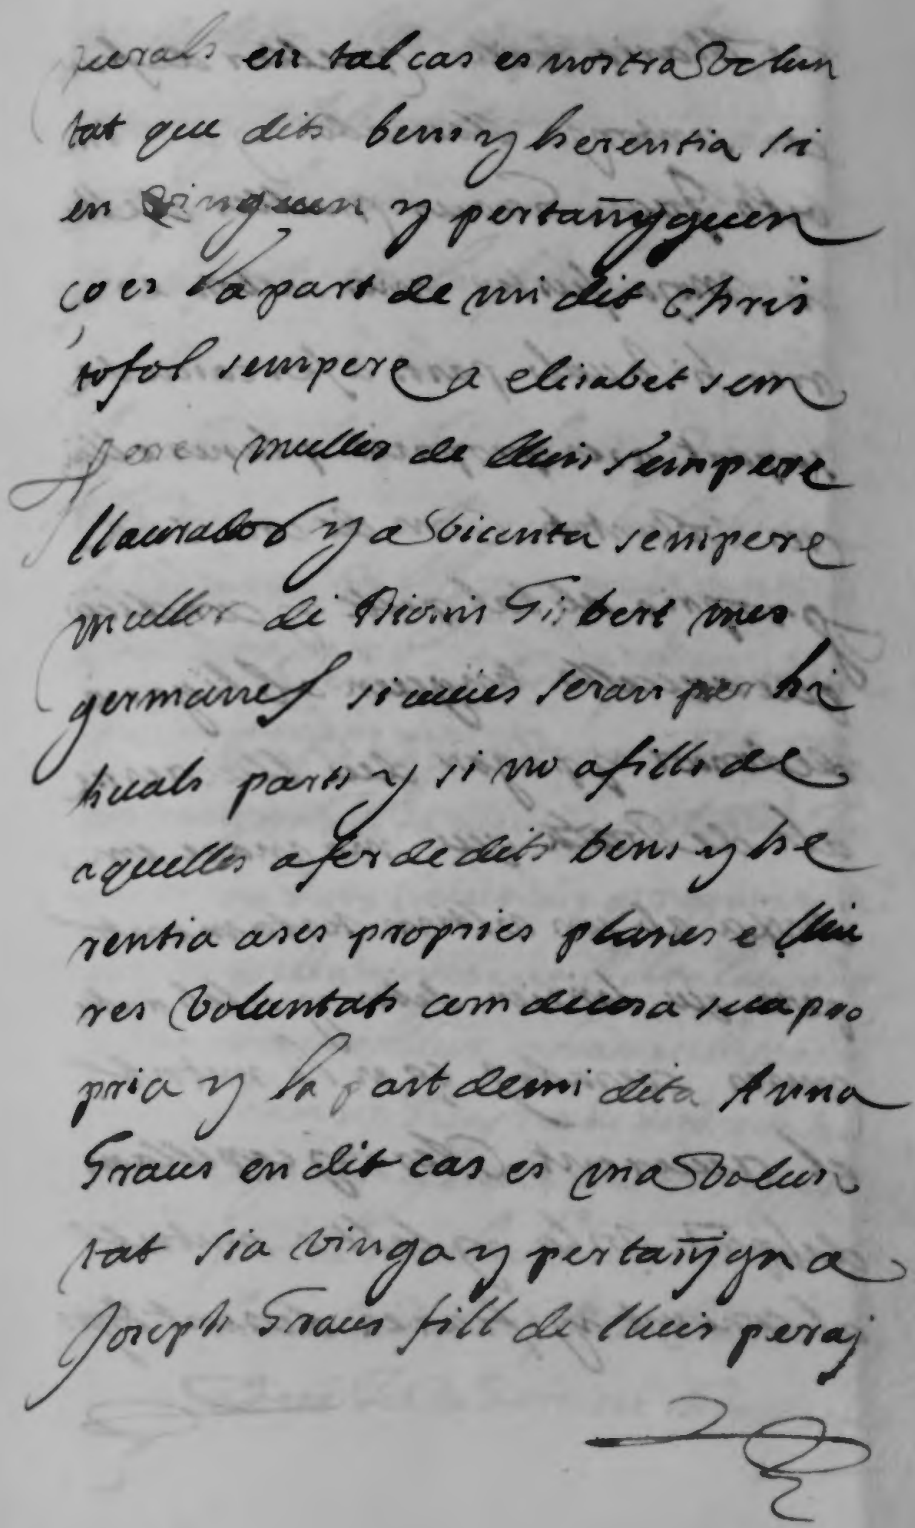 purals en tal cas es nostra volun
tat que dits bens y herentia si
en vinguen y pertañyguen
ço es la part de mi dit Chris
tofol sempere a elisabet sem
pere muller de lluis sempere
llaurador y a vicenta sempere
muller de Dionis Gisbert mes
germanes si vives seran per hi
huals parts y si no a fills de
aquelles a fer de dits bens y he
rentia a ses propries planes e lliu
res voluntats com de cosa sua pro
pria y la part de mi dita Anna
Graus en dit cas es ma volun
tat sia vinga y pertañyga a
Joseph Graus fill de lluis peraj